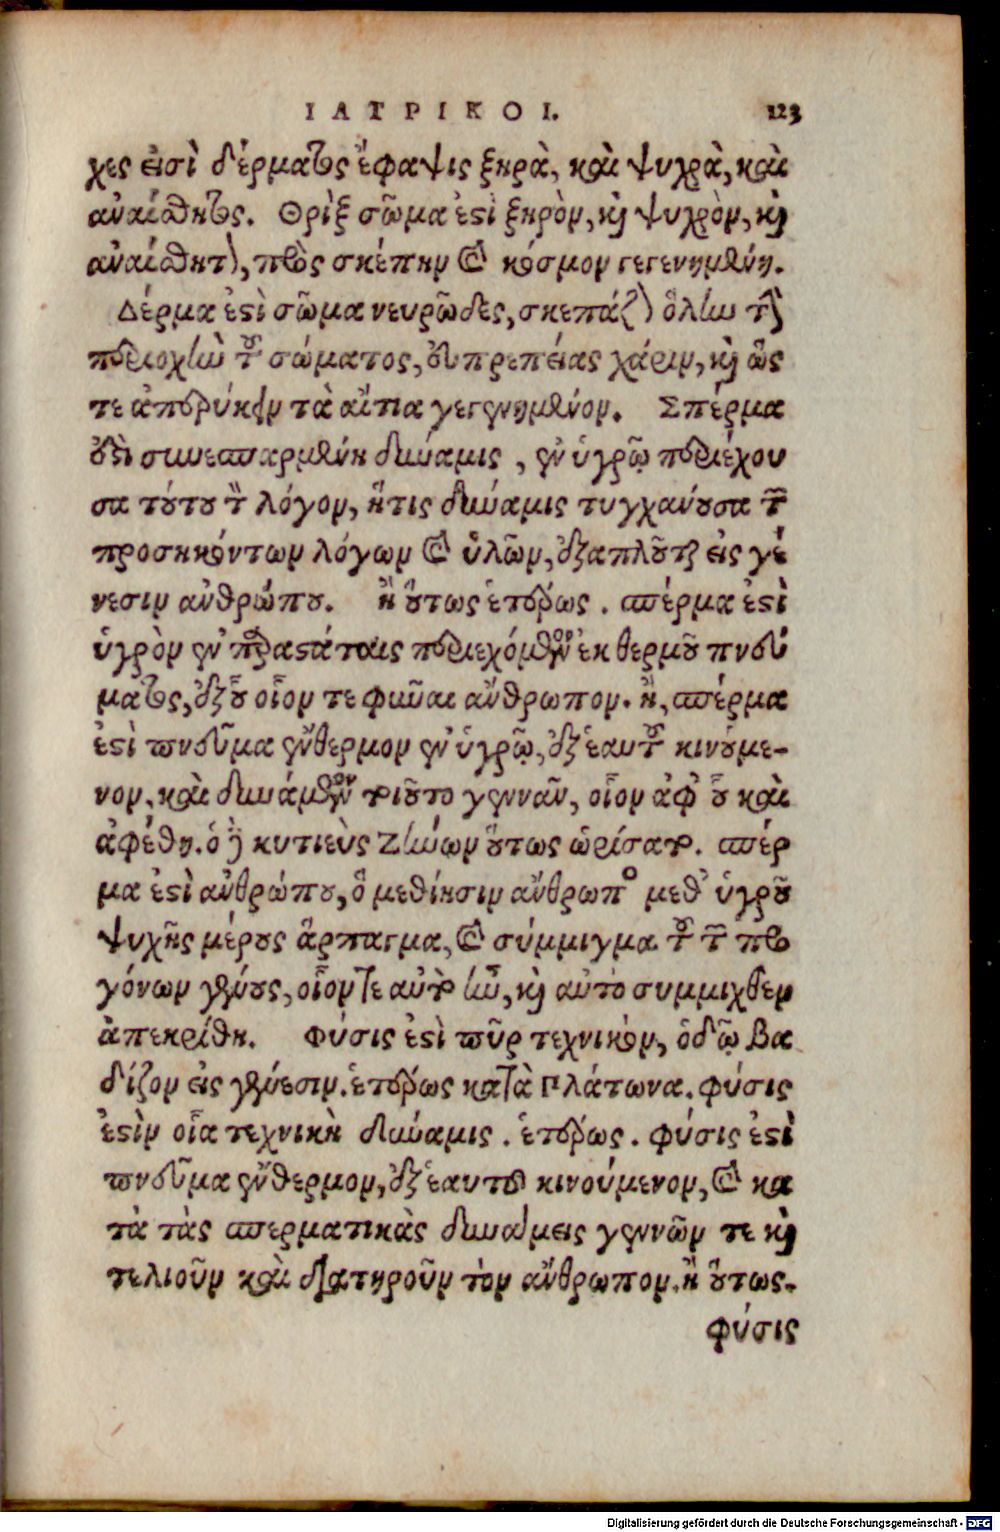 ΙΑΤΡΙΚΟΙ. 123
χες εἰσὶ δέρματος ἔφαψις ξηρὰ, καὶ ψυχρὰ, καὶ
ἀναίσθητος. Θρὶξ σῶμα ἐστὶ ξηρὸν, καὶ ψυχρὸν, καὶ
ἀναίσθητον, πρὸς σκέπην καὶ κόσμον γεγενημένη.
Δέρμα ἐστὶ σῶμα νευρῶδες, σκεπάζον ὅλην τὴν
περιοχὴν τοῦ σώματος, εὐπρεπείας χάριν, καὶ ὥς
τε ἀπερύκειν τὰ αἴτια γεγενημένον. Σπέρμα
ἐστὶ συνεσπαρμένη δύναμις, ἐν ὑγρῷ περιέχου
σα τούτου τὸν λόγον, ἥτις δύναμις τυγχανούσα τῶν
προσηκόντων λόγων καὶ ὑλῶν, ἐξαπλοῦται εἰς γέ
νεσιν ἀνθρώπου. ἢ οὕτως ἑτέρως. σπέρμα ἐστὶ
ὑγρὸν ἐν παραστάταις περιεχόμενον ἐκ θερμοῦ πνεύ
ματος, ἐξ οὗ οἷον τε φυῦναι ἄνθρωπον. ἢ, σπέρμα
ἐστὶ πνεῦμα ἔνθερμον ἐν ὑγρῷ, ἐξ ἑαυτοῦ κινούμε-
νον, καὶ δυνάμενον τοιοῦτο γεννᾶν, οἷον ἀφ' οὗ καὶ
ἀφέθη. ὁ δὲ κυτιεὺς Ζήνων οὕτως ὡρίσατο. σπέρ
μα ἐστὶ ἀνθρώπου, ὃ μεθίησιν ἄνθρωπος μεθ' ὑγροῦ
ψυχῆς μέρους ἅρπαγμα, καὶ σύμμιγμα τοῦ τῶν προ
γόνων γένους, οἷον τε αὐτὸ ἦν, καὶ αὐτὸ συμμιχθὲν
ἀπεκρίθη. Φύσις ἐστὶ πῦρ τεχνικὸν, ὁδῷ βα
δίζον εἰς γένεσιν. ἑτέρως κατὰ Πλάτωνα. φύσις
ἐστὶν οἷα τεχνικὴ δύναμις. ἑτέρως. φύσις ἐστὶ
πνεῦμα ἔνθερμον, ἐξ ἑαυτοῦ κινούμενον, καὶ κα
τὰ τὰς σπερματικὰς δυνάμεις γεννῶν τε καὶ
τελιοῦν καὶ διατηροῦν τὸν ἄνθρωπον. ἢ οὕτως.
φύσις
Digitalisierung gefördert durch die Deutsche Forschungsgemeinschaft - DFG